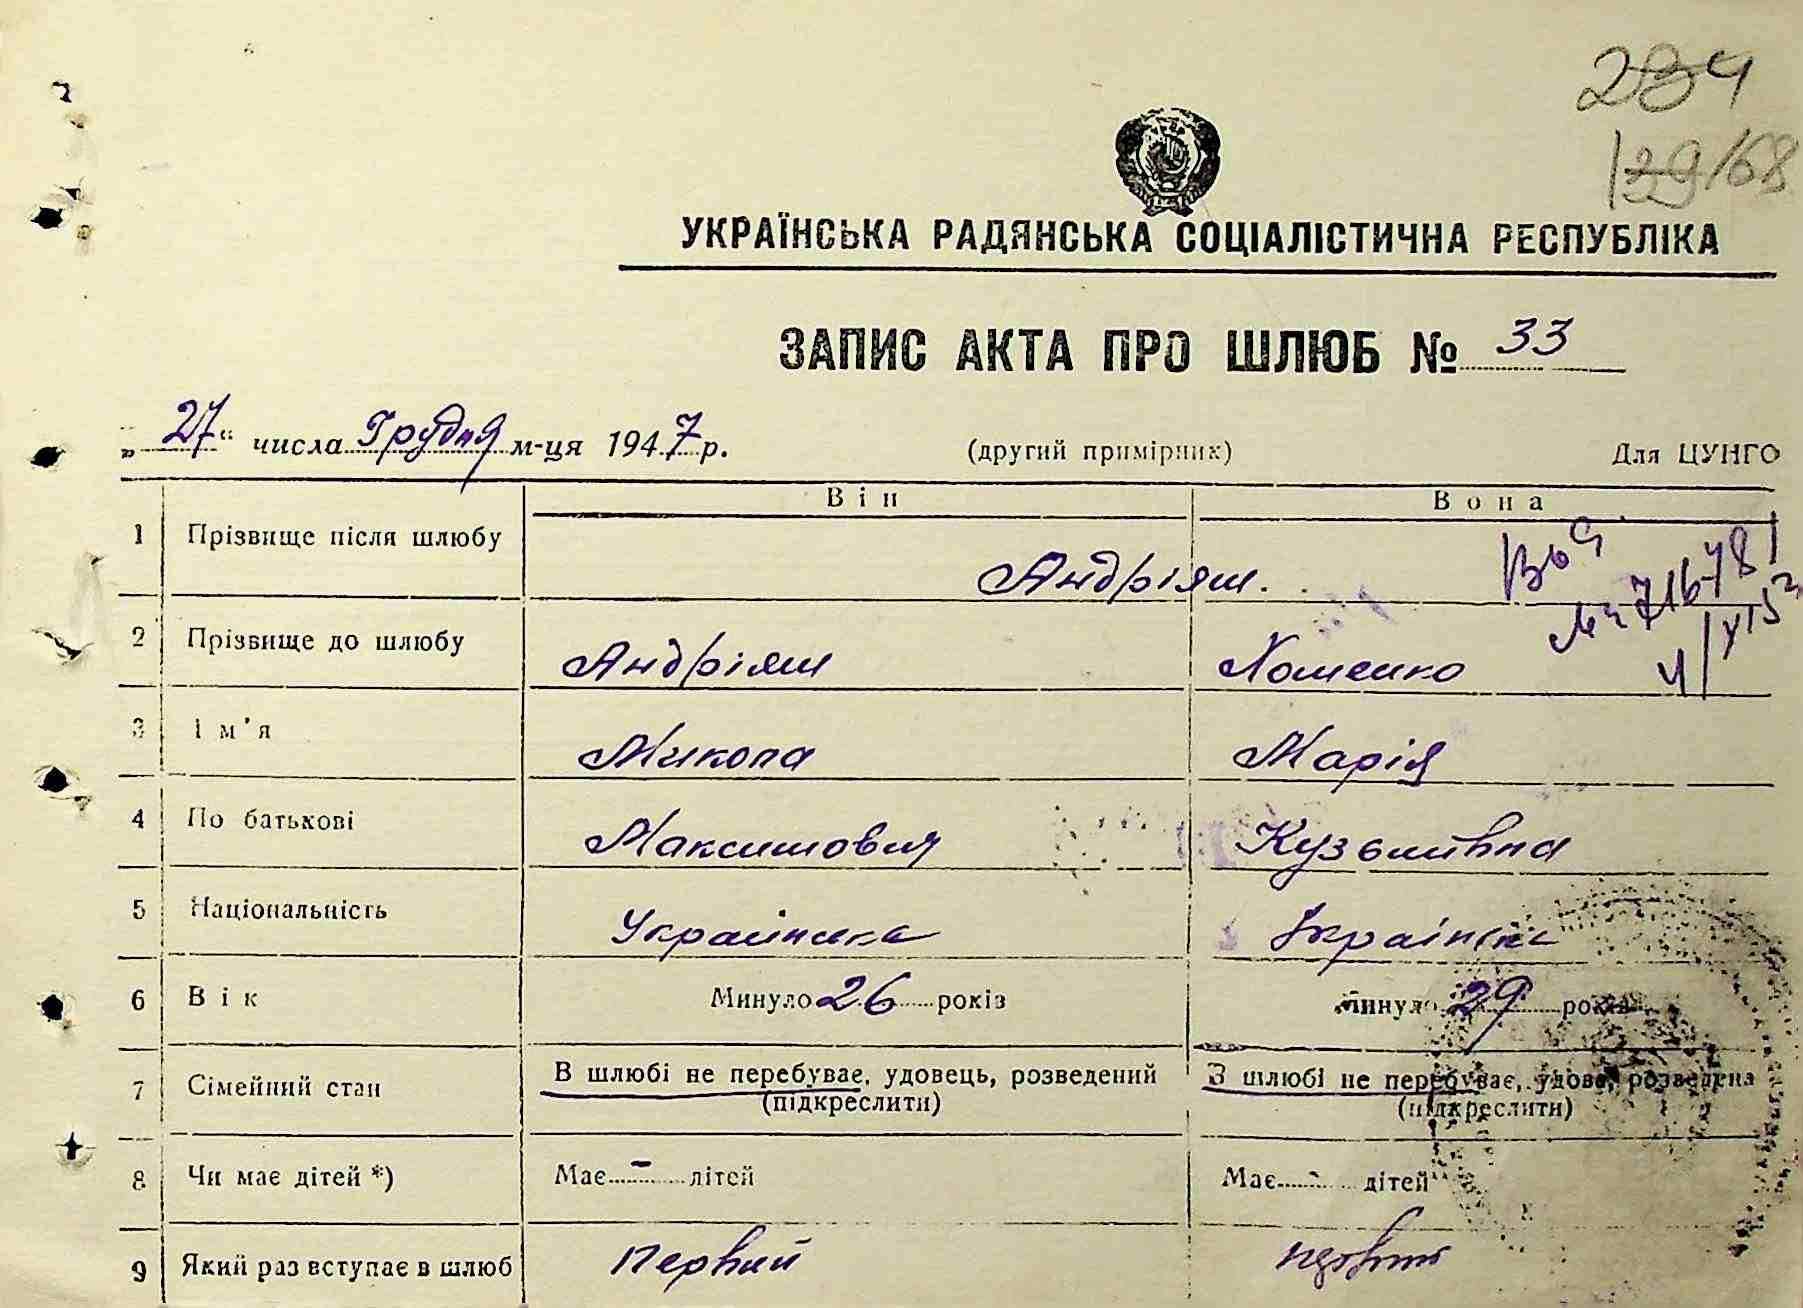 234
129/68
УКРАЇНСЬКА РАДЯНСЬКА СОЦІАЛІСТИЧНА РЕСПУБЛІКА
ЗАПИС АКТА ПРО ШЛЮБ № 33
„27“ числа Грудня м-ця 1947 р. (другий примірник) Для ЦУНГО
Він Вона
1 Прізвище після шлюбу Андріяш.
2 Прізвище до шлюбу Андріяш Хоменко
3 Ім'я Микола Марія
4 По батькові Максимович Кузьмивна
5 Національність Украинска Україінска
6 Вік Минуло 26 років Минуло 29 років
7 Сімейний стан В шлюбі не перебуває, удовець, розведений В шлюбі не перебуває, удова, розведена
(підкреслити) (підкреслити)
8 Чи має дітей *) Має - дітей Має - дітей
9 Який раз вступає в шлюб первий первий